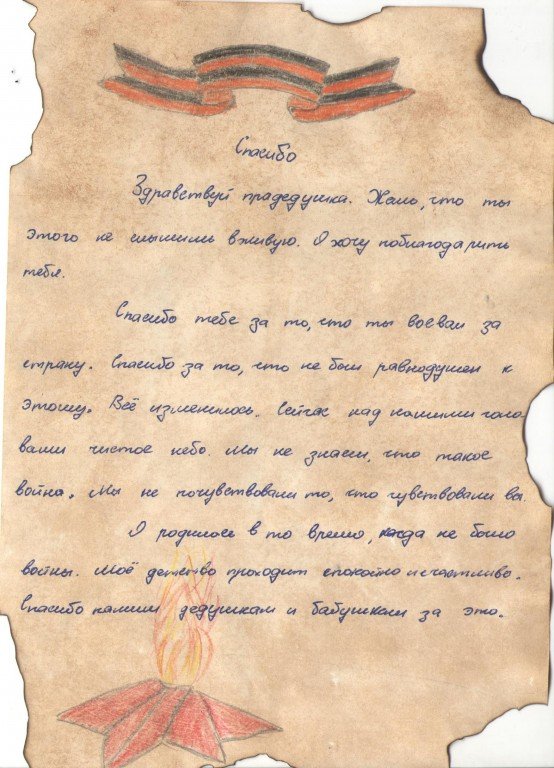 Спасибо
Здравствуй прадедушка. Жаль, что ты
этого не слышишь вживую. Я хочу поблагодарить
тебя.
Спасибо тебе за то, что ты воевал за
страну. Спасибо за то, что не был равнодушен к
этому. Всё изменилось. Сейчас над нашими голо
вами чистое небо. Мы не знаем, что такое
война. Мы не почувствовали то, что чувствовали вы.
Я родилась в то время, когда не было
войны. Моё детство проходит спокойно и счастливо.
Спасибо нашим дедушкам и бабушкам за это.